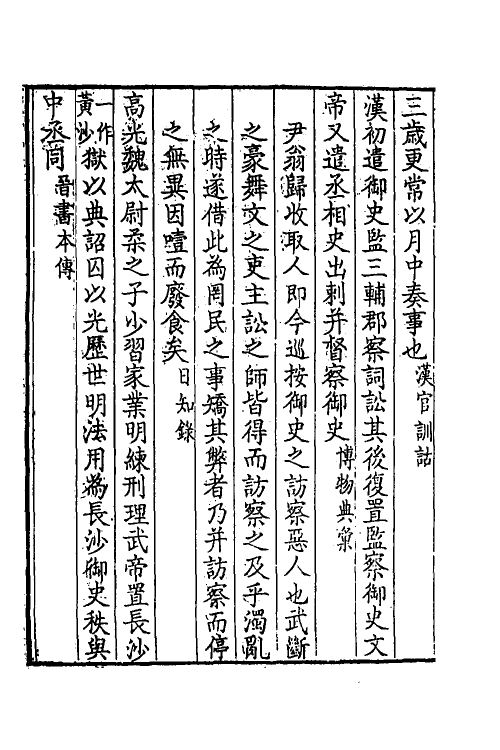 三歲更常以月中奏事也漢官訓詁
漢初遣御史監三輔郡察詞訟其後復置監察御史文
帝又遣丞相史出刺并督察御史博物典彙
尹翁歸收取人即今巡按御史之訪察惡人也武斷
之豪舞文之吏主訟之師皆得而訪察之及乎濁亂
之時遂借此為罔民之事矯其弊者乃并訪察而停
之無異因噎而廢食矣日知錄
高光魏太尉柔之子少習家業明練刑理武帝置長沙
一作黃沙獄以典詔囚以光歷世明法用為長沙御史秩與
中丞同晉書本傳